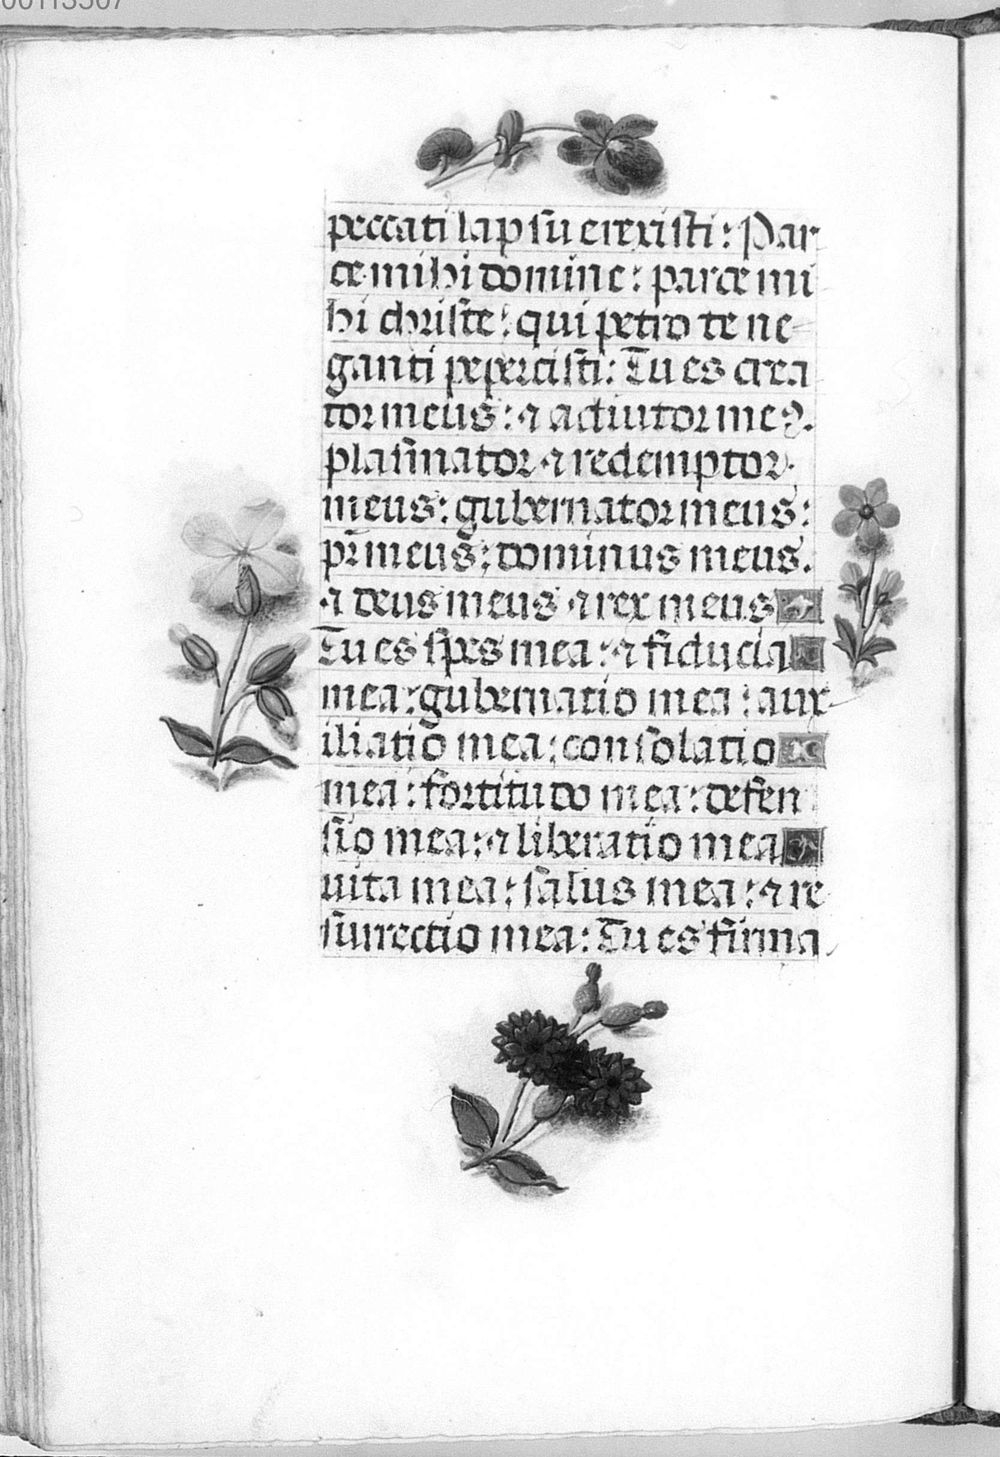 00113507
peccati lapsu erexisti: Par
ce mihi domine: parce mi
hi christe: qui petro te ne
ganti pepercisti: Tu es crea
tor meus: ⁊ adiutor meꝰ.
plasmator ⁊ redemptor
meus: gubernator meus:
pr̄ meus: dominus meus.
⁊ deus meus ⁊ rex meus
Tu es spes mea: ⁊ fiducia
mea: gubernatio mea: aux
iliatio mea: consolatio
mea: fortitudo mea: defen
sio mea: ⁊ liberatio mea
vita mea: salus mea: ⁊ re
surrectio mea: Tu es firma